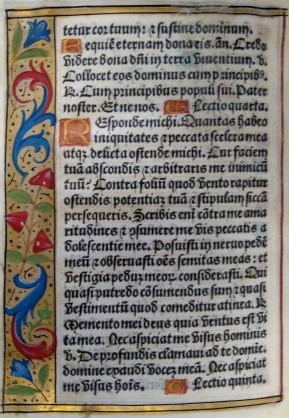 tetur cor tuum: & sustine dominum.
Requiē eternam dona eis. añ. Credo
videre bona dñi in terra viuentium. v.
Collocet eos dominus cum principibꝰ.
R. Cum principibus populi sui. Pater
noster. Et ne nos. Lectio quarta.
Responde michi. Quantas habeo
iniquitates & peccata scelera mea
atqꝫ delicta ostende michi. Cur faciem
tuā abscondis & arbitraris me inimicū
tuū? Contra foliū quod vento rapitur
ostendis potentiaꝫ tuā & stipulam siccā
persequeris. Scribis eni cōtra me ama
ritudines & psumere me vis peccatis a
dolescentie mee. Posuisti in neruo pedē
meū & obseruasti oēs semitas meas: et
vestigia peduꝫ meoꝝ considerasti. Qui
quasi putredo cōsumendus sum & quasi
vestimentū quod comeditur a tinea. R
Memento mei deus quia ventus est vi
ta mea. Nec aspiciat me visus hominis
v. De profundis clamaui ad te domine.
domine exaudi voceꝫ meā. Nec aspiciat
me visus hoīs. Lectio quinta.